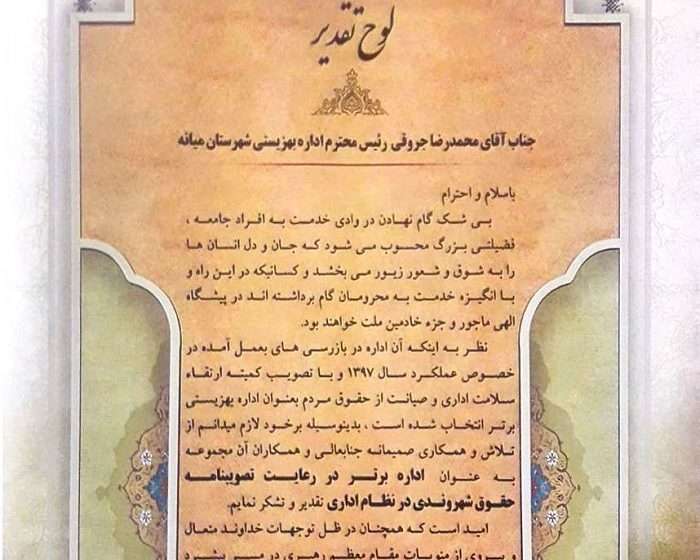 لوح تقدیر
جناب آقای محمدرضا جروقی رئیس محترم اداره بهزیستی شهرستان میانه
باسلام و احترام
بی شک گام نهادن در وادی خدمت به افراد جامعه ،
فضیلتی بزرگ محسوب می شود که جان و دل انسان ها
را به شوق و شعور زیور می بخشد و کسانیکه در این راه و
با انگیزه خدمت به محرومان گام برداشته اند در پیشگاه
الهی ماجور و جزء خادمین ملت خواهند بود.
نظر به اینکه آن اداره در بازرسی های بعمل آمده در
خصوص عملکرد سال ۱۳۹۷ و با تصویب کمیته ارتقاء
سلامت اداری و صیانت از حقوق مردم بعنوان اداره بهزیستی
برتر انتخاب شده است ، بدینوسیله برخود لازم میدانم از
تلاش و همکاری صمیمانه جنابعالی و همکاران آن مجموعه
به عنوان اداره برتر در رعایت تصویبنامه
حقوق شهروندی در نظام اداری تقدیر و تشکر نمایم.
امید است که همچنان در ظل توجهات خداوند متعال
و پیروی از منویات مقام معظم رهبری در مسیر پیشبرد